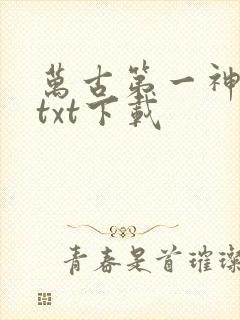 萬古第一神
txt下載
青春是首璀璨